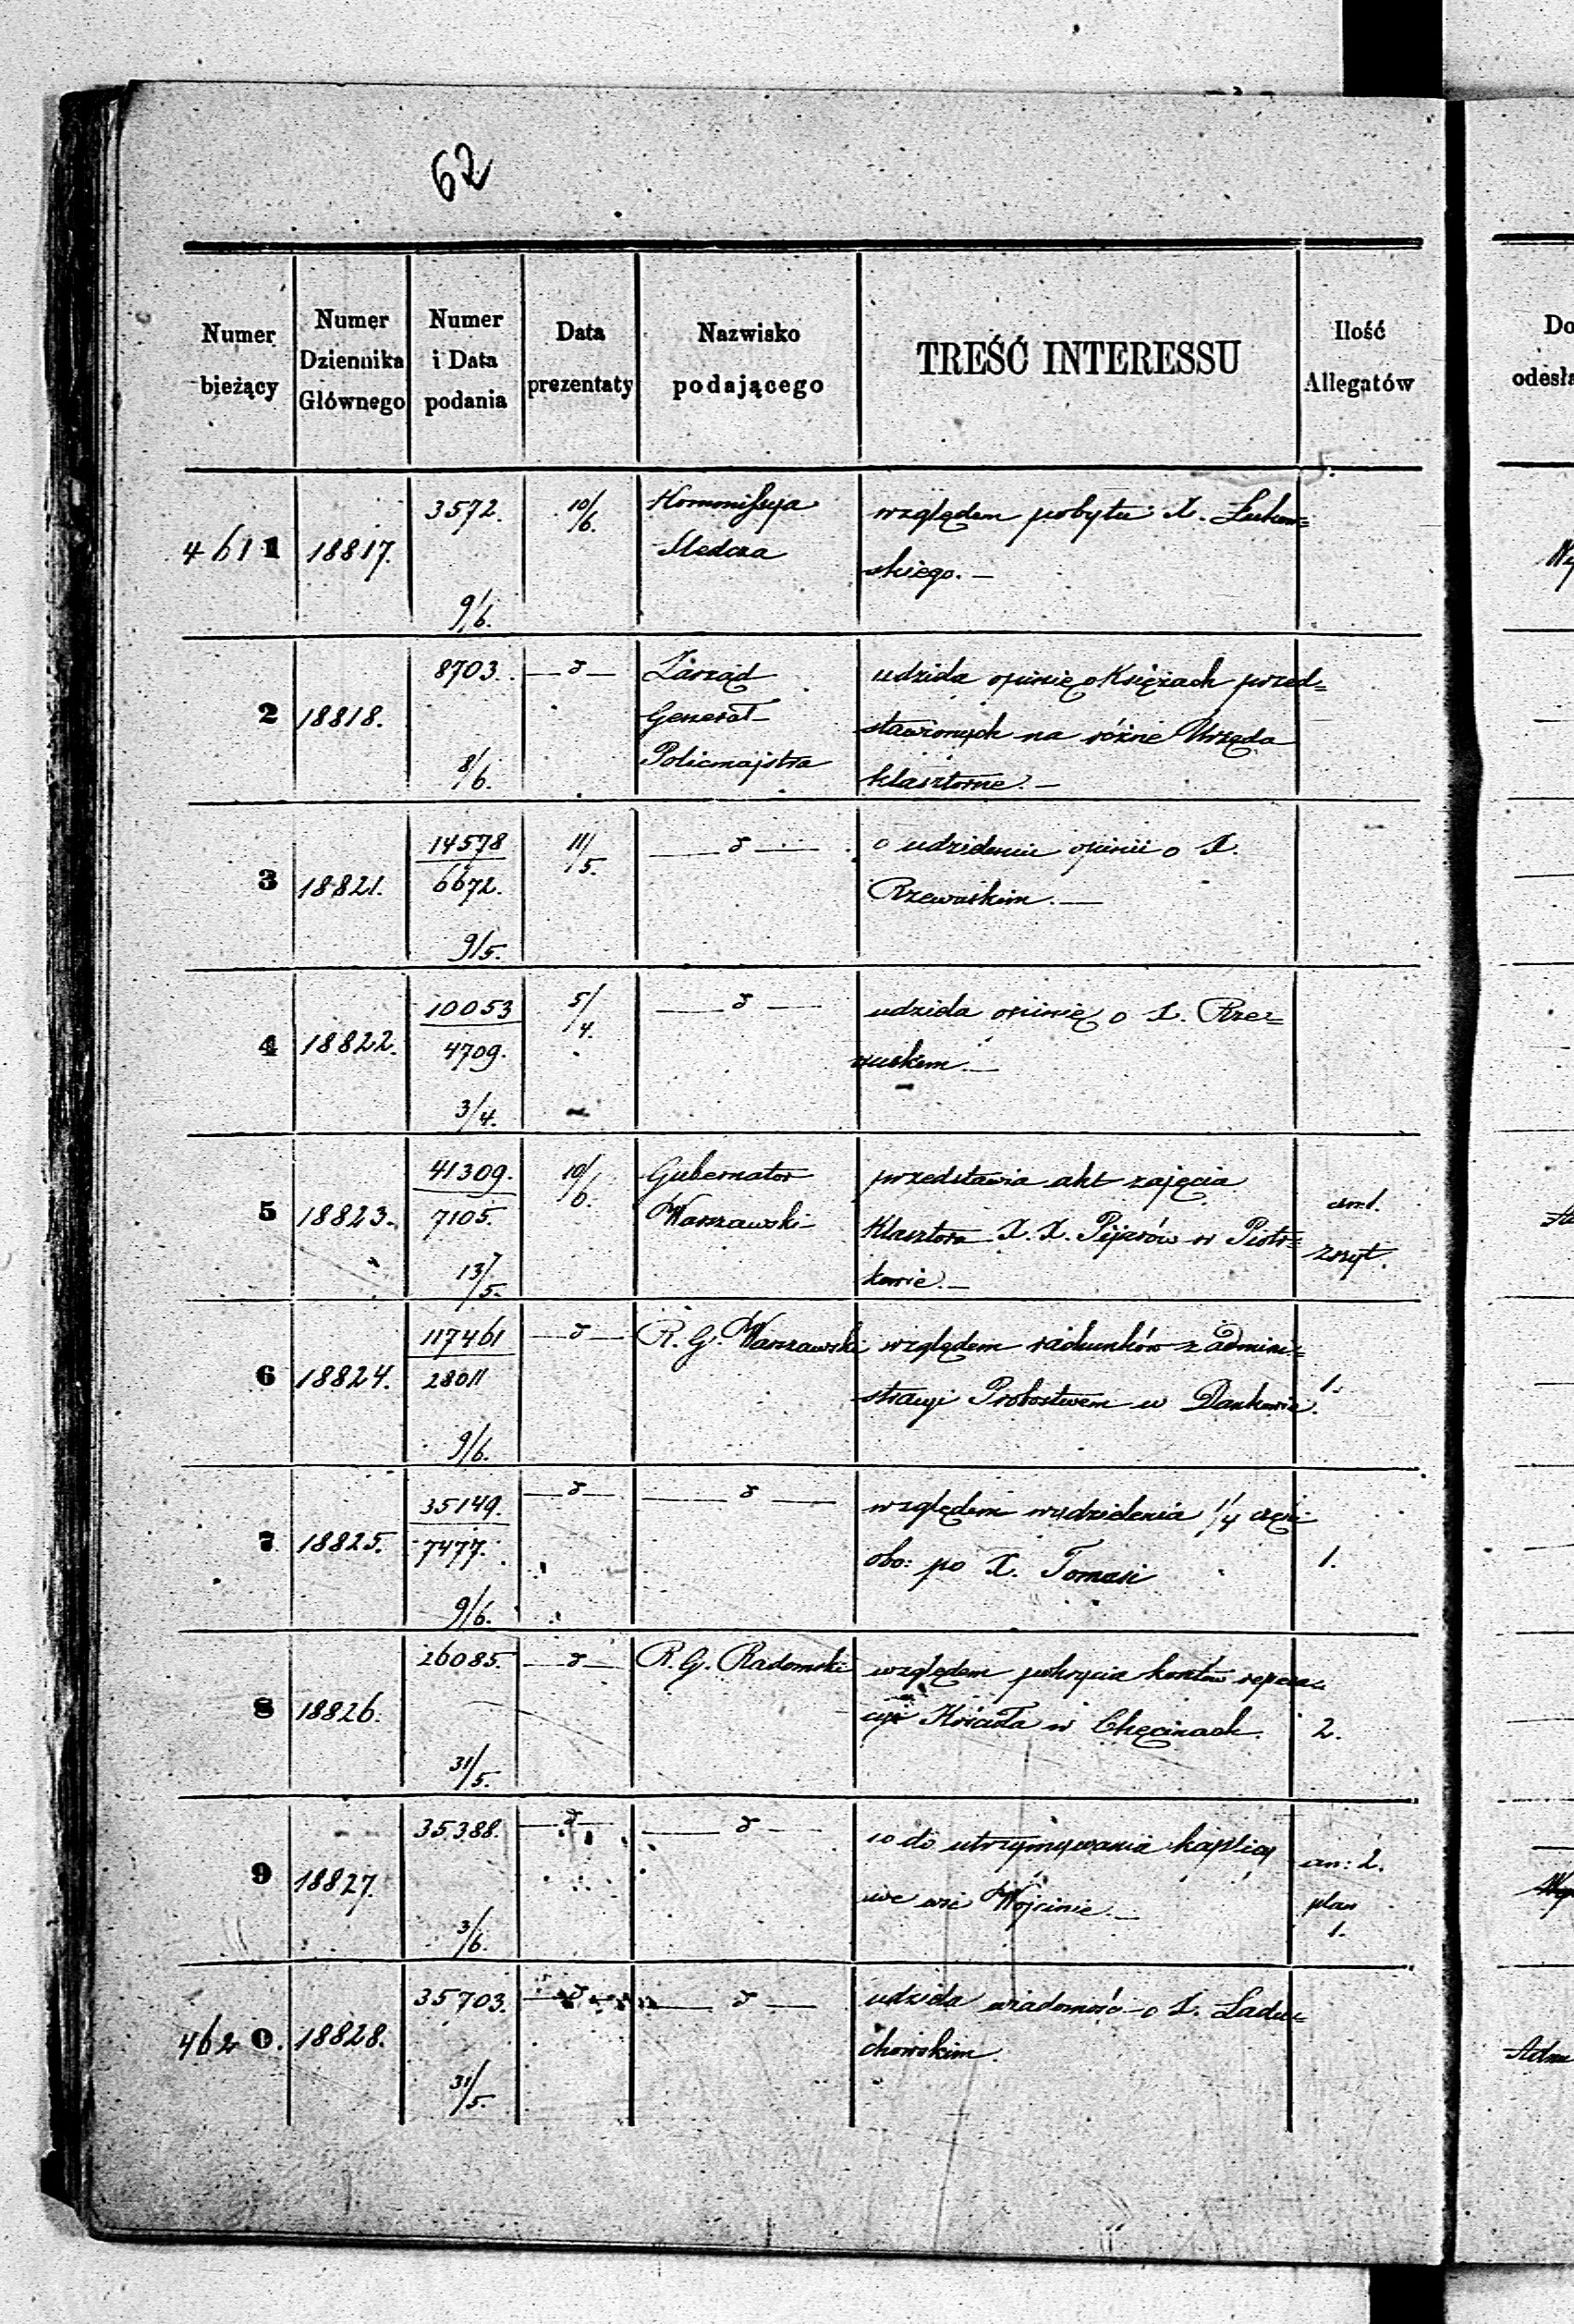 62
Numer bieżący
Numer Dziennika Głównego
Numer i Data podania
Data prezentaty
Nazwisko podającego
TREŚĆ INTERESSU
Ilość Allegatów
Do
odesła
4611
18817.
3572.
9/6.
10/6.
Kommissyja
Śledcza
względem pobytu X. Lukow=
skiego. —
2
18818.
8703.
8/6.
— d —
Zarząd
Generał-
Policmajstra
udziela opinię o Księżach przed=
stawionych na różne Urzęda
klasztorne. —
3
18821.
14578
6672.
9/5.
11/5.
— d —
o udzielenie opinii o X.
Rzewuskim. —
4
18822.
10053
4709.
3/4.
5/4.
— d —
udziela opinię o X. Rze=
wuskim. —
5
18823.
41309.
7105.
13/5.
10/6.
Gubernator
Warszawski
przedstawia akt zajęcia
Klasztoru X. X. Pijarów w Piotr=
kowie. —
zszyt.
6
18824.
117461
28011
9/6.
— d —
R. G. Warszawski
względem rachunków z admini=
stracyi Probostwem w Dankowie.
1.
7
18825.
35149.
7477.
9/6.
— d —
— d —
względem wydzielenia 1/4 części
obo: po X. Tomasi
1.
8
18826.
26085.
31/5.
— d —
R. G. Radomski
względem pokrycia kosztów repera=
cyi Kościoła w Chęcinach.
2.
9
18827.
35388.
3/6.
— d —
— d —
co do utrzymywania kaplicy
we wsi Wójcinie. —
an: 2.
plan
1.
4620.
18828.
35703.
31/5.
— d —
— d —
udziela wiadomość o X. Ladu=
chowskim.